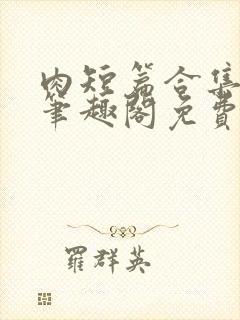 肉短篇合集
笔趣阁免费
羅群英